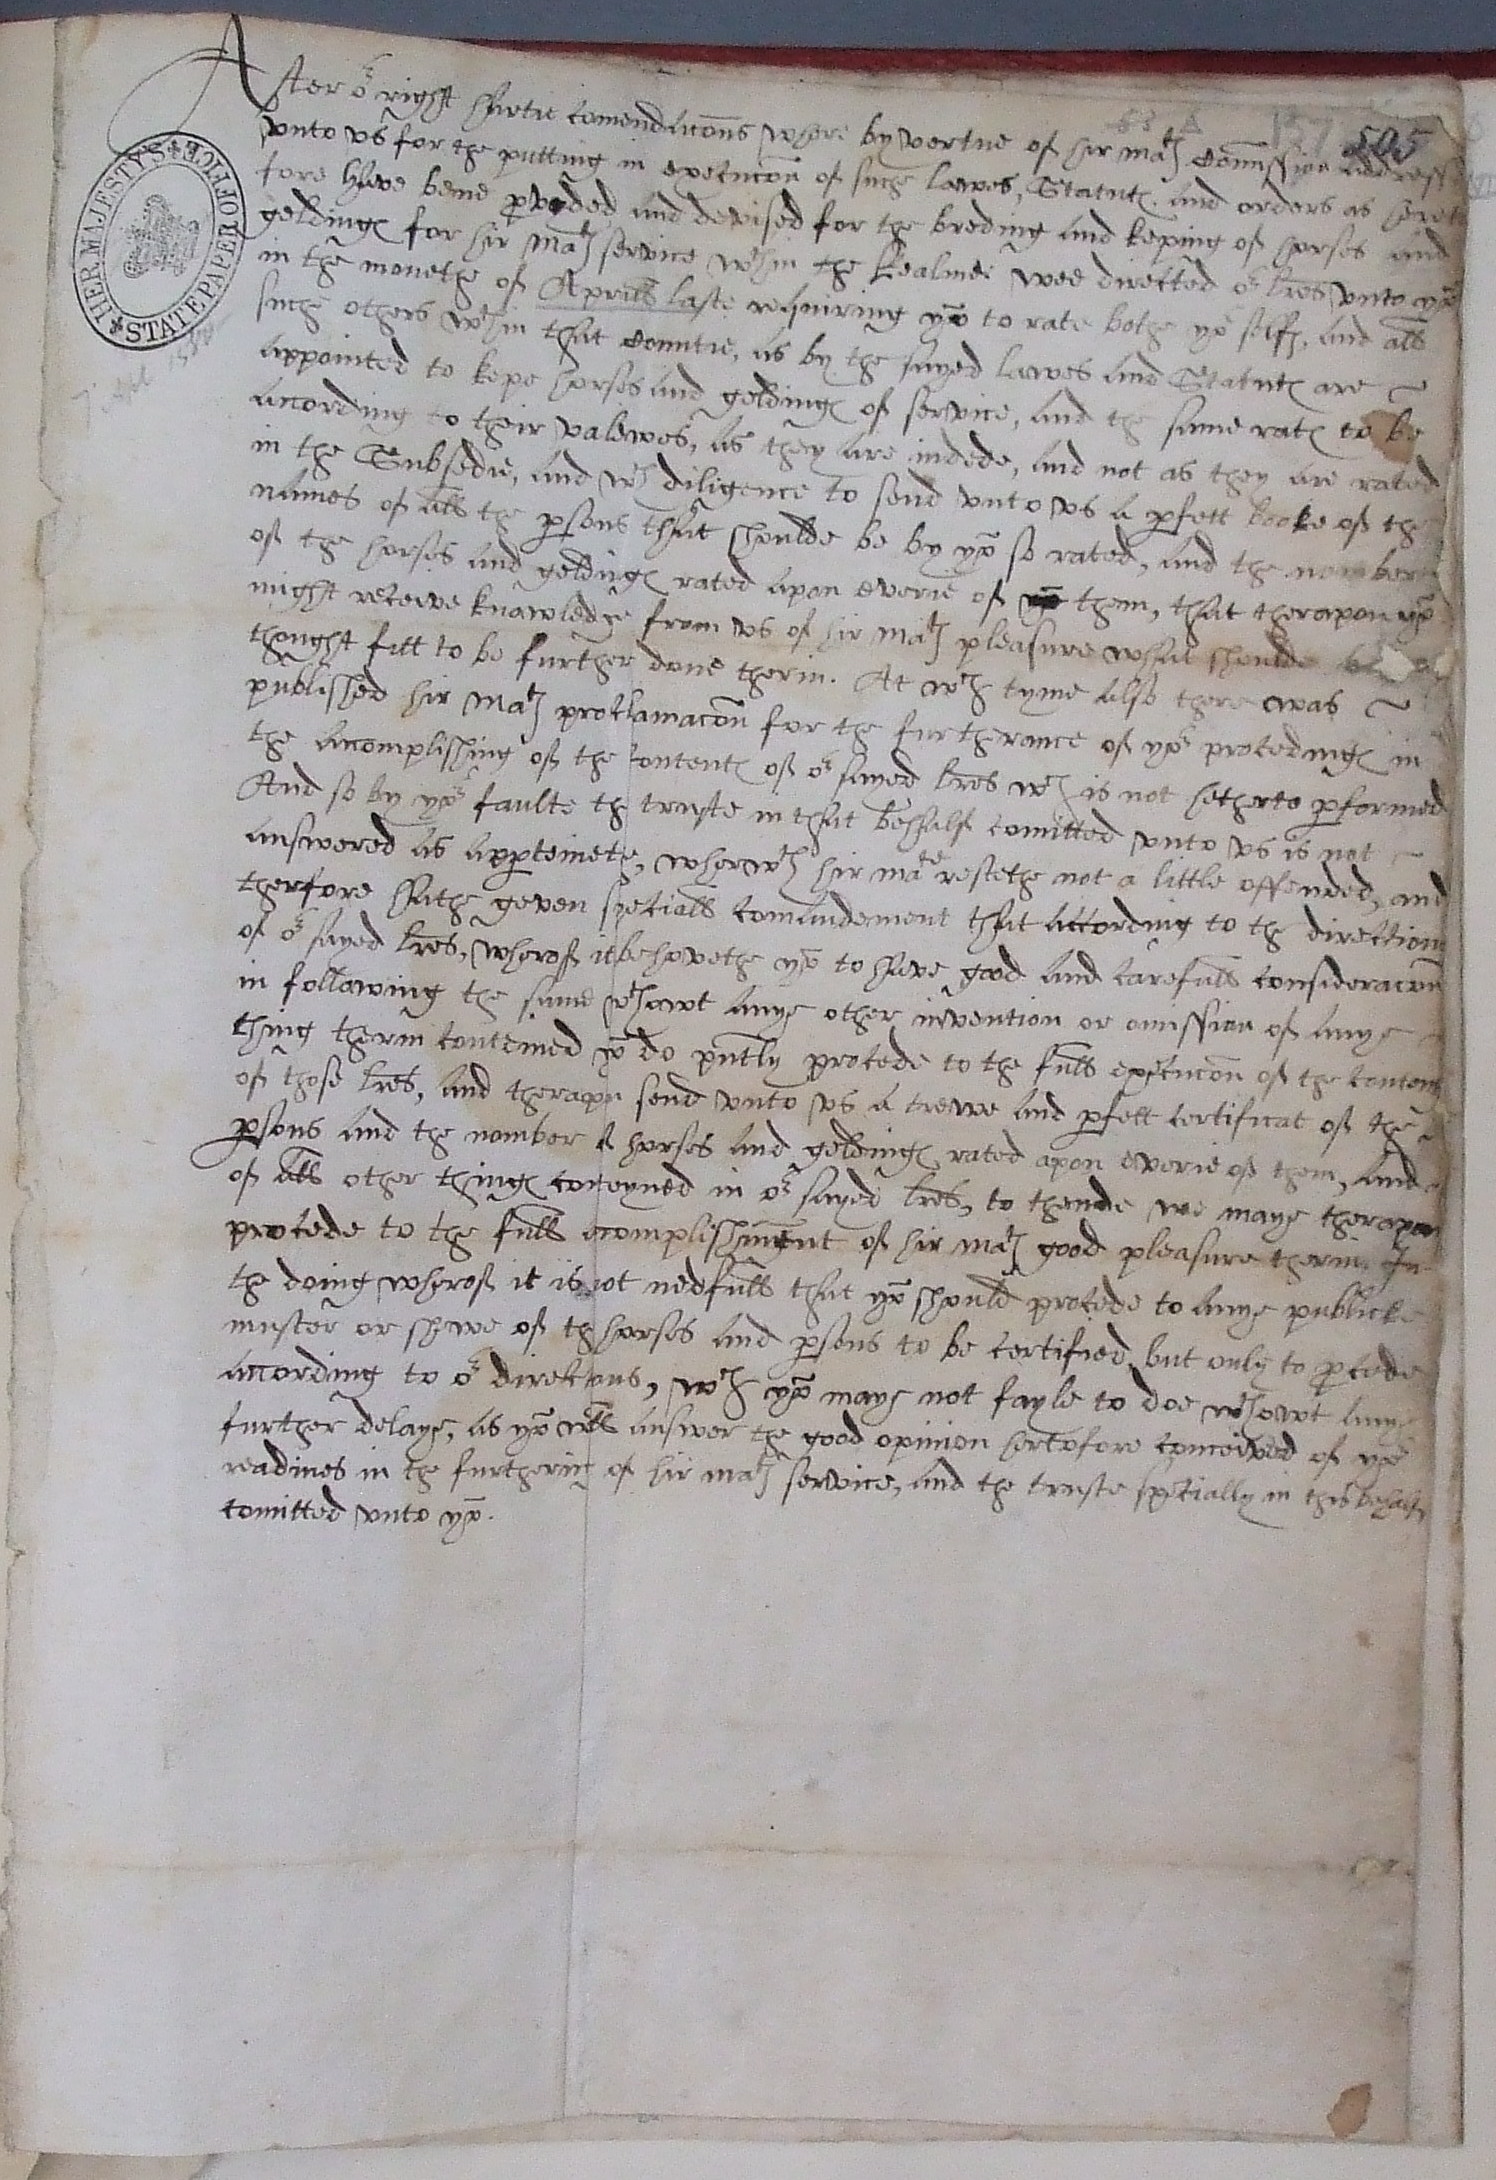 After or right hartie comendacons where by vertue of hir Matē Comission addressed
unto us for the putting in execucon of suche lawes, Statutē and orders as hereto
fore have bene pvyded and devised for the breding and keping of horses and
geldingē for hir Matē service wthin the Realme wee directed or lres unto you
in the monethe of Aprill laste requiring you to rate bothe yor selfē, and all
suche others wthin that Countie, as by the sayed lawes and Statutē are
appointed to kepe horses and geldingē of service, and the same ratē to be
according to their valewes, as they are indede, and not as they are rated
in the Subsedie, and wth diligence to send unto us a pfett booke of the
names of all the psons that shoulde be by you so rated, and the nomber
of the horses and geldingē rated apon everie of them, that therapon you
might receive knowledge from us of hir Matē pleasure what shoulde be
thought fitt to be further done therin. At wch tyme also there was
published hir Matē proclamacon for the furtherance of yor procedingē in
the acomplishing of the contentē of or sayed lres wch is not hetherto pformed
And so by yor faulte the truste in that behalf comitted unto us is not
answered as apperteinethe, wherwth hir Matie restethe not a little offended, and
therfore hathe geven speciall comaundement that according to the direction
of or sayed lres, wherof it behovethe you to have good and carefull consideracon
in following the same wthowt anye other invention or omission of anye
thing therin conteined you do pntly procede to the full execucon of the content
of those lres, and therapon send unto us a trewe and pfett certificat of the
psons and the nomber of horses and geldingē rated apon everie of them, and
of all other thingē conteyned in or sayed lres, to thende we maye therapon
procede to the full acomplishment of hir Matē good pleasure therin. In
the doing wherof it is not nedfull that you should procede to anye publicke
muster or shewe of the horses and psons to be certified, but only to pcede
according to or directions, wch you maye not fayle to doe wthowt anye
further delaye, as you will answer the good opinion hertofore conceived of yor
readines in the furthering of hir Matē service, and the truste specially in this behalf
comitted unto you.
505
HER MAJESTY'S STATE PAPER OFFICE